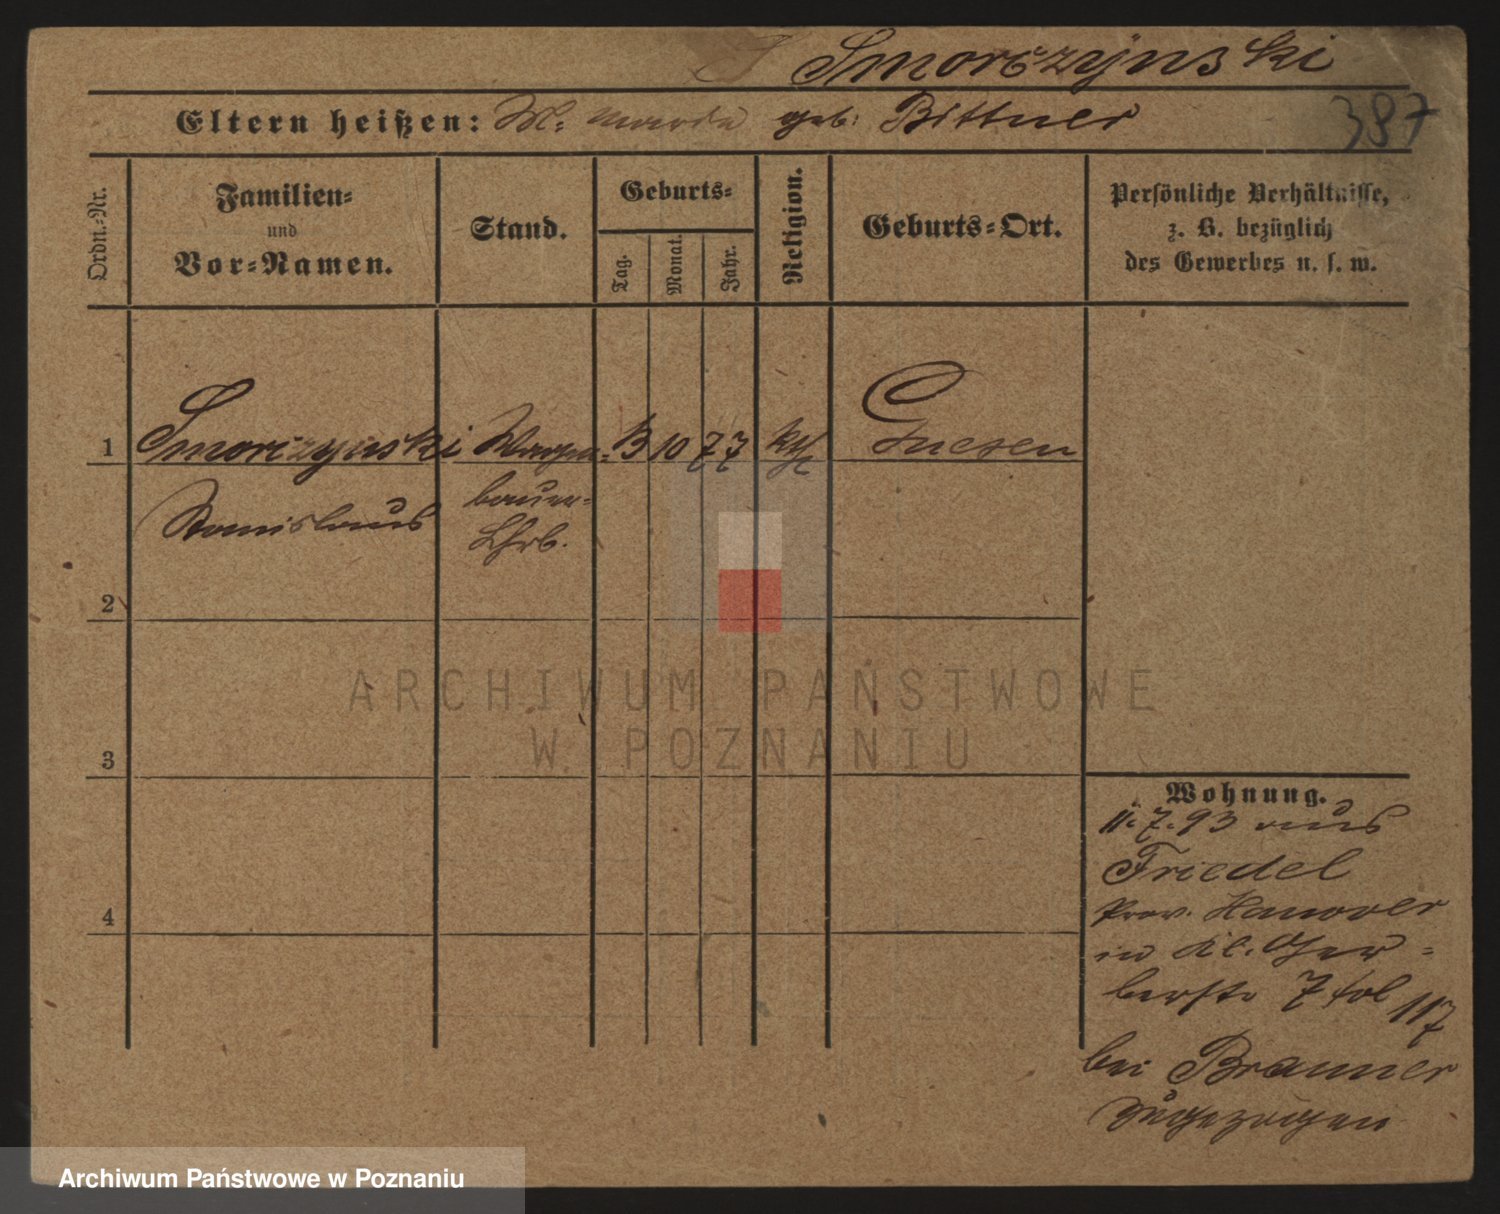 Smorczynski
Eltern heißen: M. Maria geb. Bittner
387
Ordn.-Nr.
Familien-
und
Vor-Namen.
Stand.
Geburts-
Tag.
Monat.
Jahr.
Religion.
Geburts-Ort.
Persönliche Verhältnisse,
z. B. bezüglich
des Gewerbes u. s. w.
1 Smorczynski Wagen- 3 10 77 kth Gnesen
Stanislaus bauer-
Lhrb.
2
3
4
ARCHIWUM PAŃSTWOWE
W POZNANIU
Wohnung.
11.7.93 aus
Friedel
Prov. Hanover
in kl. Ger-
berstr 7 fol 117
bei Brauner
zugezogen
Archiwum Państwowe w Poznaniu